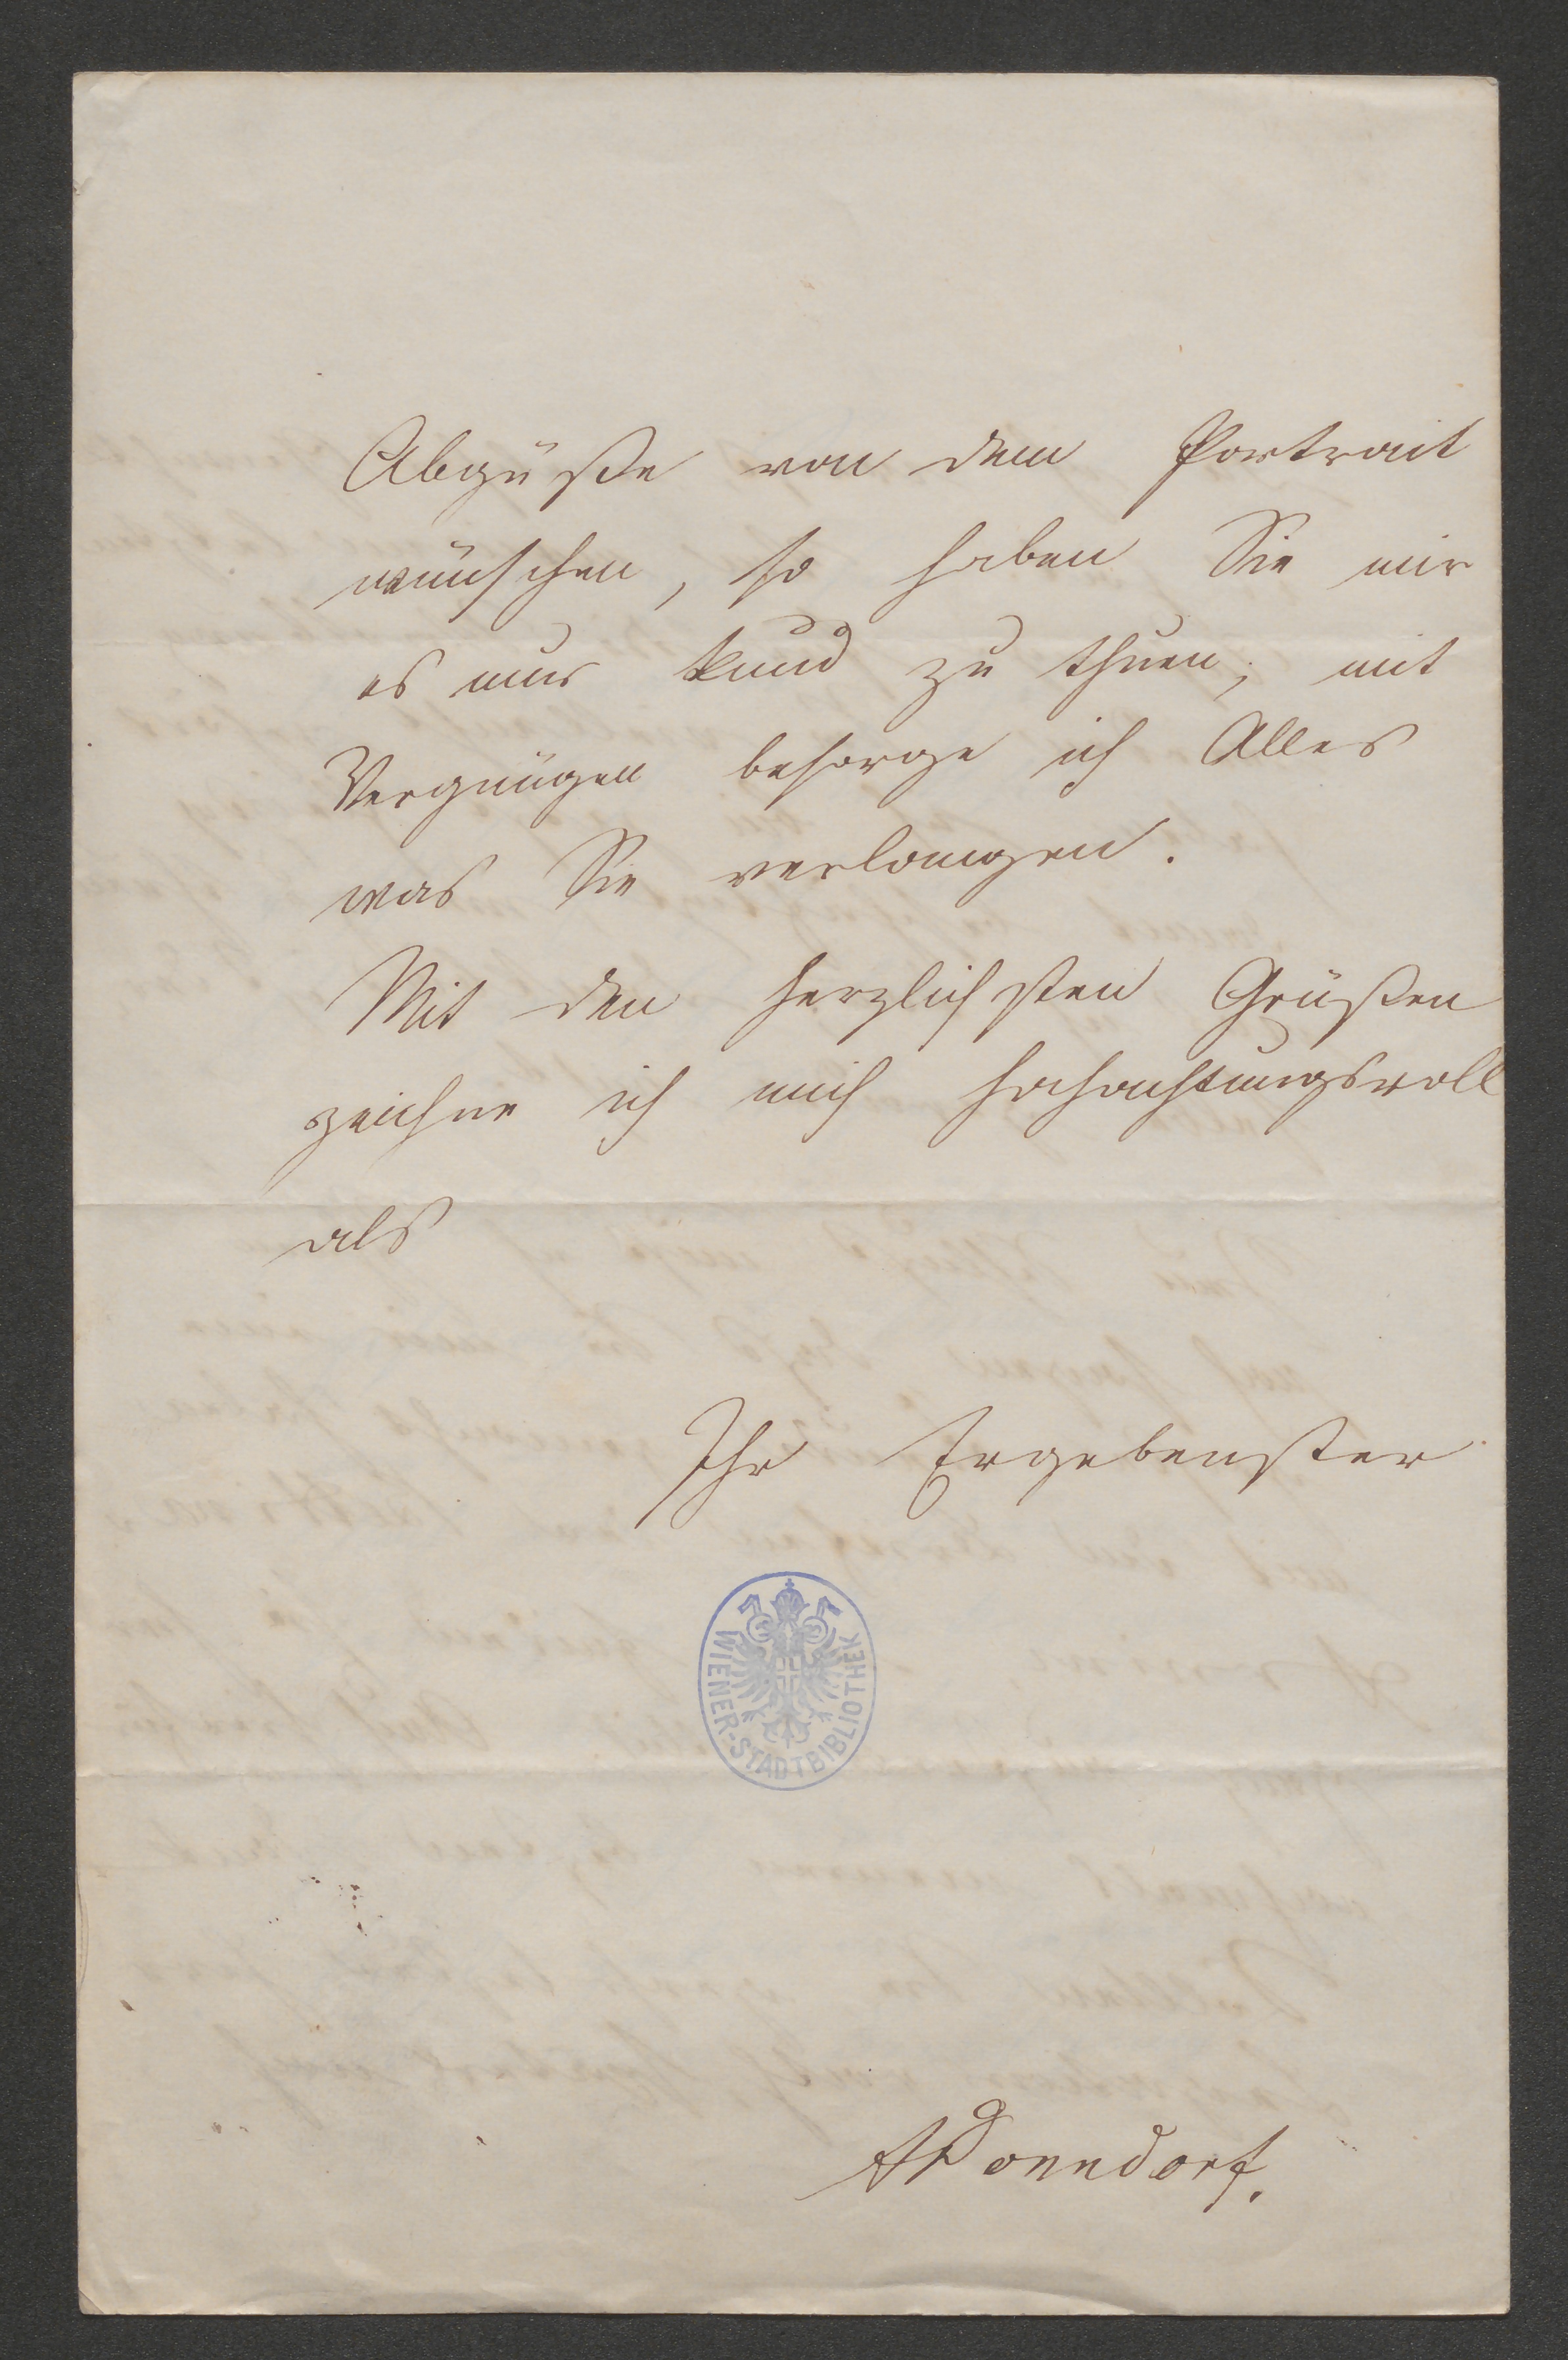 Abgüße von dem Portrait
wünschen, so haben Sie mir
es nur kund zu thuen; mit
Vergnügen besorge ich Alles
was Sie verlangen.
Mit den herzlichsten Grüßen
zeichne ich mich hochachtungsvoll
als
Ihr Ergebenster
WIENER-STADTBIBLIOTHEK
ADonndorf.